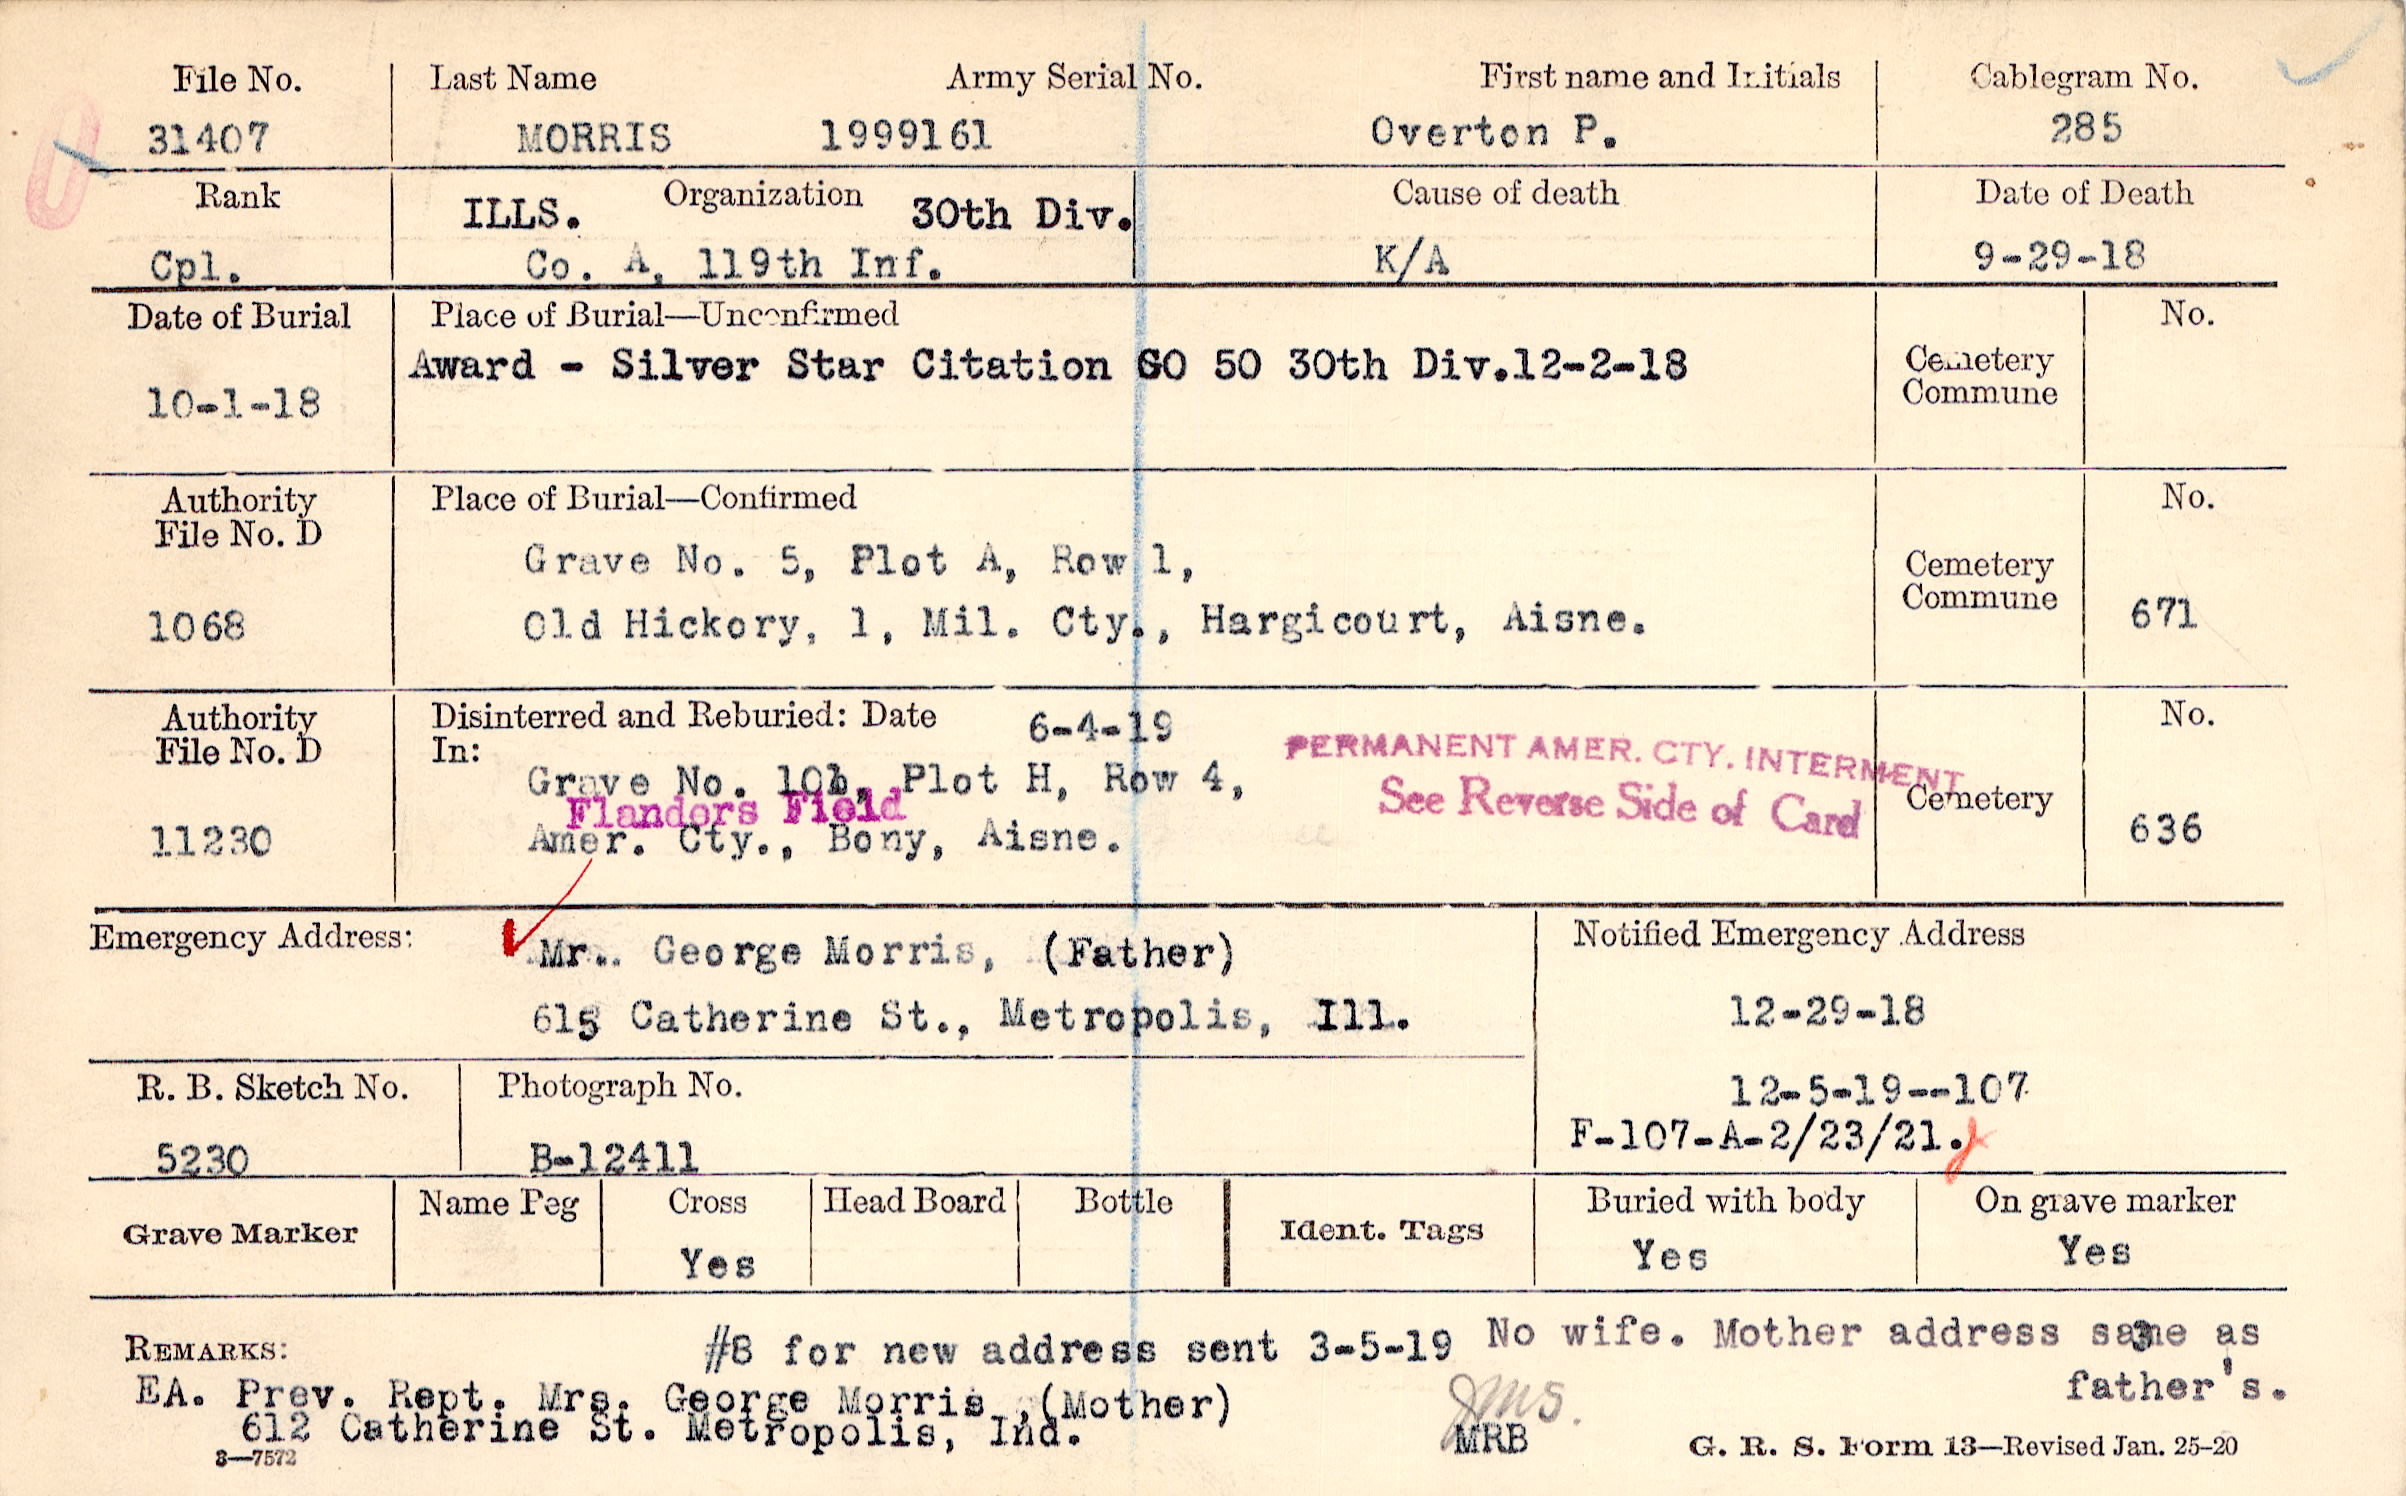 File No. Last Name Army Serial No. First name and Initials Cablegram No.
31407 MORRIS 1999161 Overton P. 285
Rank Organization Cause of death Date of Death
ILLS. 30th Div.
Cpl. Co. A, 119th Inf. K/A 9-29-18
Date of Burial Place of Burial—Unconfirmed No.
Award - Silver Star Citation GO 50 30th Div.12-2-18 Cemetery
10-1-18 Commune
Authority Place of Burial—Confirmed No.
File No. D
Grave No. 5, Plot A, Row 1, Cemetery
Commune
1068 Old Hickory, 1, Mil. Cty., Hargicourt, Aisne. 671
Authority Disinterred and Reburied: Date 6-4-19 No.
File No. D In:
PERMANENT AMER. CTY. INTERMENT
Grave No. Plot H, Row 4,
See Reverse Side of Card Cemetery
Flanders Field
11230 Amer. Cty., Bony, Aisne. 636
Emergency Address: Mr. George Morris, (Father) Notified Emergency Address
615 Catherine St., Metropolis, Ill. 12-29-18
R. B. Sketch No. Photograph No. 12-5-19--107
F-107-A-2/23/21.
5230 B-12411
Grave Marker Name Peg Cross Head Board Bottle Ident. Tags Buried with body On grave marker
Yes Yes Yes
REMARKS: #8 for new address sent 3-5-19 No wife. Mother address same as
father's.
EA. Prev. Rept. Mrs. George Morris ,(Mother)
612 Catherine St. Metropolis, Ind.
MRB
3—7572 G. R. S. Form 13—Revised Jan. 25-20